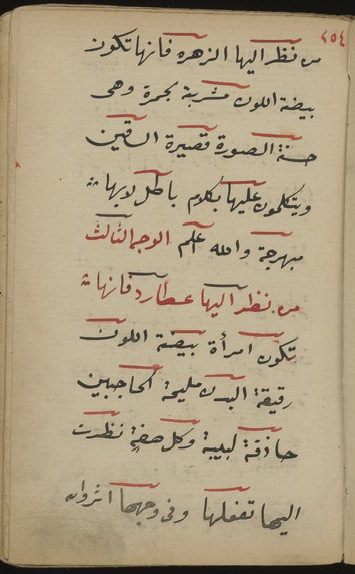 ٢٥٤
من نظر اليها الزهره فانها تكون
بيضة اللون مشربة بحمرة وهى
حسنة الصورة قصيرة الساقين
ويتكلمون عليها بكلام باطل لانها
مبهرجة والله اعلم الوجه الثالث
من نظر اليها عطارد فانها
تكون امرأة بيضة اللون
رقيقة البدن مليحة الحاجبين
حاذقة لبيبة وكل صفة نظرت
اليها تفعلها وفى وجهها اثر وان